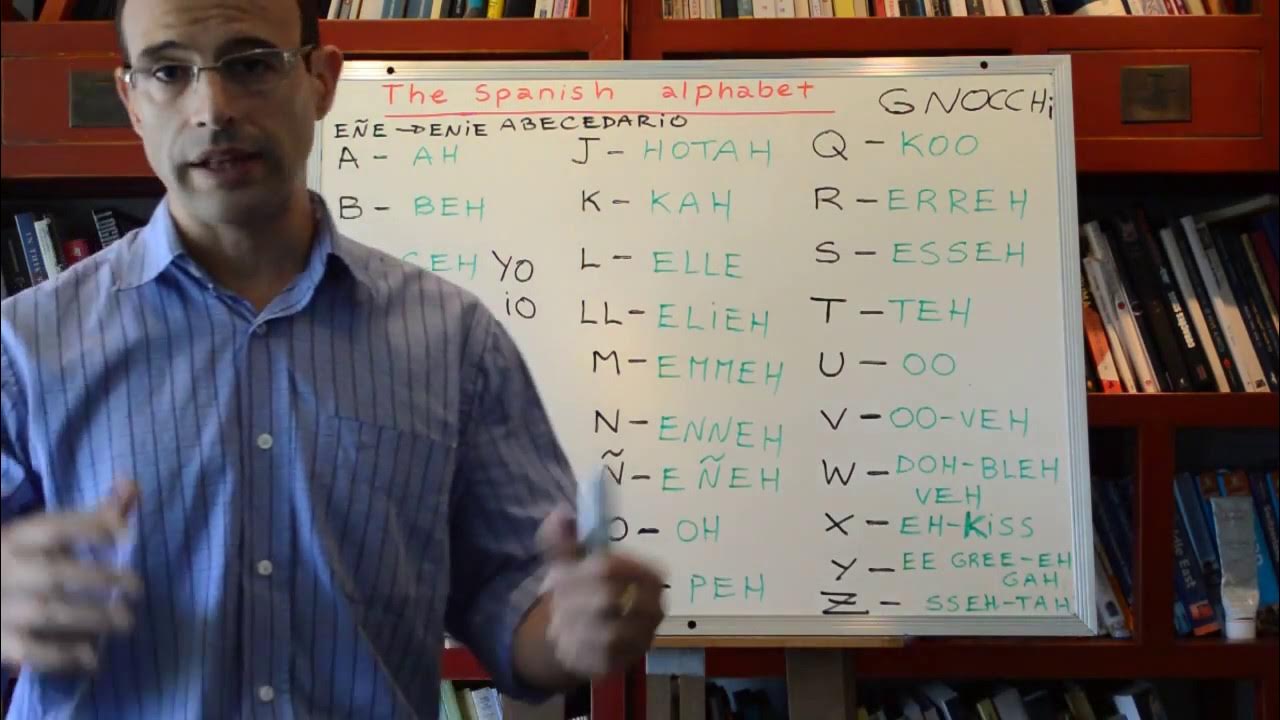 The Spanish alphabet
GNOCCHi
EÑE ABECEDARIO
A - AH
B - BEH
CEH
YO
iO
J - HOTAH
K - KAH
L - ELLE
LL - ELiEH
M - EMMEH
N - ENNEH
Ñ - EÑEH
O - OH
- PEH
Q - KOO
R - ERREH
S - ESSEH
T - TEH
U - OO
V - OO-VEH
W - DOH-BLEH
VEH
X - EH-KiSS
Y - EE GREE-EH
GAH
Z - SSEH-TAH